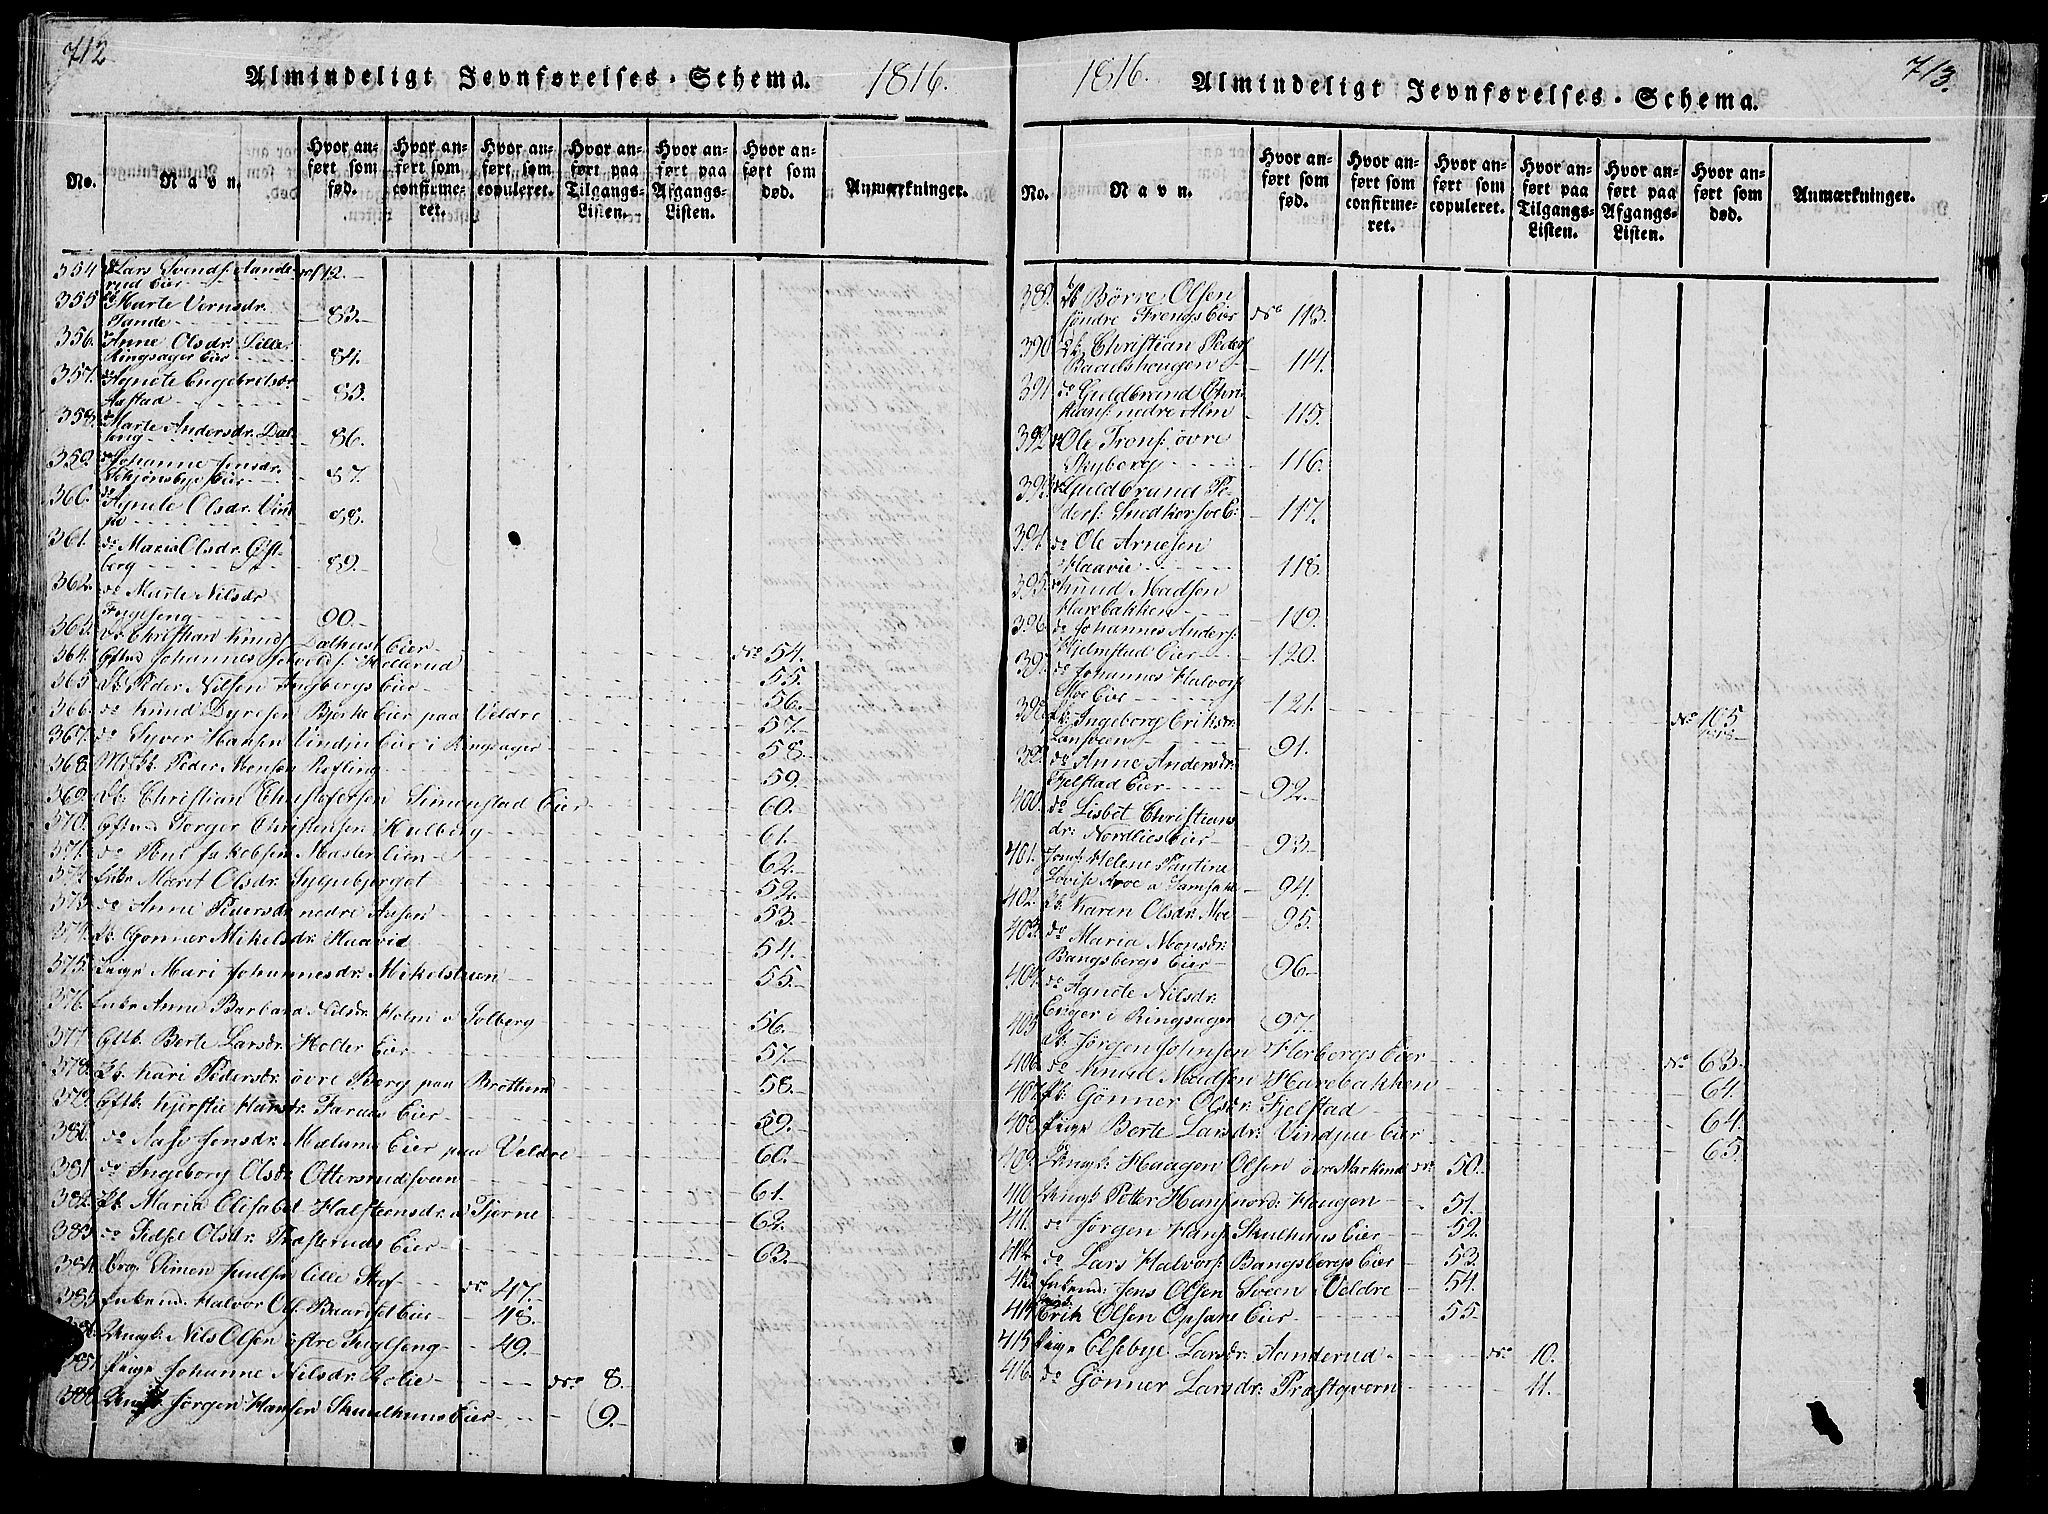 712
Almindeligt Jevnførelses-Schema. 1816.
No.
Navn.
Hvor anført som fød.
Hvor anført som confirmeret.
Hvor anført som copuleret.
Hvor anført paa Tilgangs-Listen.
Hvor anført paa Afgangs-Listen.
Hvor anført som død.
Anmærkninger.
354 Lars Svends: Aande
rud Eier 112.
355 Marte Vernsdr.
Tande 83.
356. Anne Olsdr. Lille
Ringsager Eier 84.
357. Agnete Engebretsdr.
Aastad 85.
358. Marte Andersdr. Dal
seng 86.
359. Johanne Jensdr.
Schjønsbye Eier 87.
360. Agnete Olsdr. Vind
ju 88.
361. do Maria Olsdr. Øst
berg 89.
362. do Marte Nilsdr
Fuglseng 90.
363. Christian Knuds Dalhust Eier No 54.
364. Gftmd Johannes Hollerud 55.
365 Peder Nilsen Ingbergs Eier 56.
366. do Knud Dyresen Bjørke Eier paa Veldre 57.
367. do Syver Hansen Vindju Eier i Ringsager 58.
368. Peder Monsen Kylling 59.
369. Christian Christofersen Simenstad Eier 60.
370. Gftmd Torger Christensen Hulberg 61.
371. do Jakobsen Mæhlen 62.
372. Enke Marit Olsdr. 52.
373. do Anne Pedersdr nedre Aasen 53.
374. Gønner Mikelsdr. Haavid 54.
375. Pige Mari Johannesdr. Mikelstuen 55.
376. Enke Anne Barbara Nilsdr. Holm v Solberg 56.
377. Gftk. Berte Larsdr. Holder Eier 57.
378. Kari Pedersdr. øvre Berg paa Brøttum 58.
379. Gftk. Kjerstie Hansdr. Farnes Eier 59.
380. do Aase Jensdr. Mælums Eier paa Veldre 60.
381. do Ingeborg Olsdr Ottersrudsveen 61.
382. Maria Elisabet Halsteensdr. a Tjerne 62.
383. do Sidsel Olsdr. Præsteruds Eier 63.
384. Simen Poulsen Lille Staf No 47.
385 Enkemd. Halvor Ols. Baardset Eier 48.
386. Ungk: Nils Olsen østre Fuglseng 49.
387. Pige Johanne Nilsdr. Rolie No 8.
388. Ungk Jørgen Hansen Skuelhuus Eier 9.
1816. Almindeligt Jevnførelses-Schema. 713.
No.
Navn.
Hvor anført som fød.
Hvor anført som confirmeret.
Hvor anført som copuleret.
Hvor anført paa Tilgangs-Listen.
Hvor anført paa Afgangs-Listen.
Hvor anført som død.
Anmærkninger.
389. Børre Olsen
søndre Frengs Eier No 113.
390 Christian Peders
Baadshougen 114.
391 do Guldbrand Chri
stians: nedre Alm 115.
392 Ole Trons: øvre
Skyberg 116.
393 Guldbrand Pe
ders: Snedkersve E: 117.
394. do Ole Arnesen
Haavie 118.
395. Knud Madsen
Harebakken 119.
396. do Johannes Anders:
Hjelmstad Eier 120.
397 do Johannes Halvors
Moe Eie 121.
No 105
1818
398. Ingeborg Eriksdr.
Lansveen 91.
399. do Anne Andersdr.
Fjelstad Eier 92.
400. do Lisbet Christians
dr: Nordlies Eier 93.
401. Helene Pauline
Lovise Aroe 94.
402. Karen Olsdr. Moe 95.
403. do Maria Monsdr.
Bangsbergs Eier 96.
404. do Agnete Nilsdr.
Enger i Ringsager 97.
405 Jørgen Johnsen Herbergs Eier No 63.
406. do Knud Madsen Harebakken 64.
407. Gønner Olsdr. Fjelstad 64.
408. Pige Berte Larsdr. Vindjue Eier 65.
409. Ungk: Haagen Olsen øvre Markend No 50.
410 Ungk: Petter Hans: nord: Haugen 51.
411. do Jørgen Hans Skuelhuus Eier 52.
412. do Lars Halvors: Bangsbergs Eier 53.
413. Enkemd: Jens Olsen Sveen i Veldre 54.
414. Erik Olsen Opsam Eier 55.
415 Pige Elsebye Larsdr. Aanderud No 10.
416. do Gønner Larsdr. Præstqvern 11.